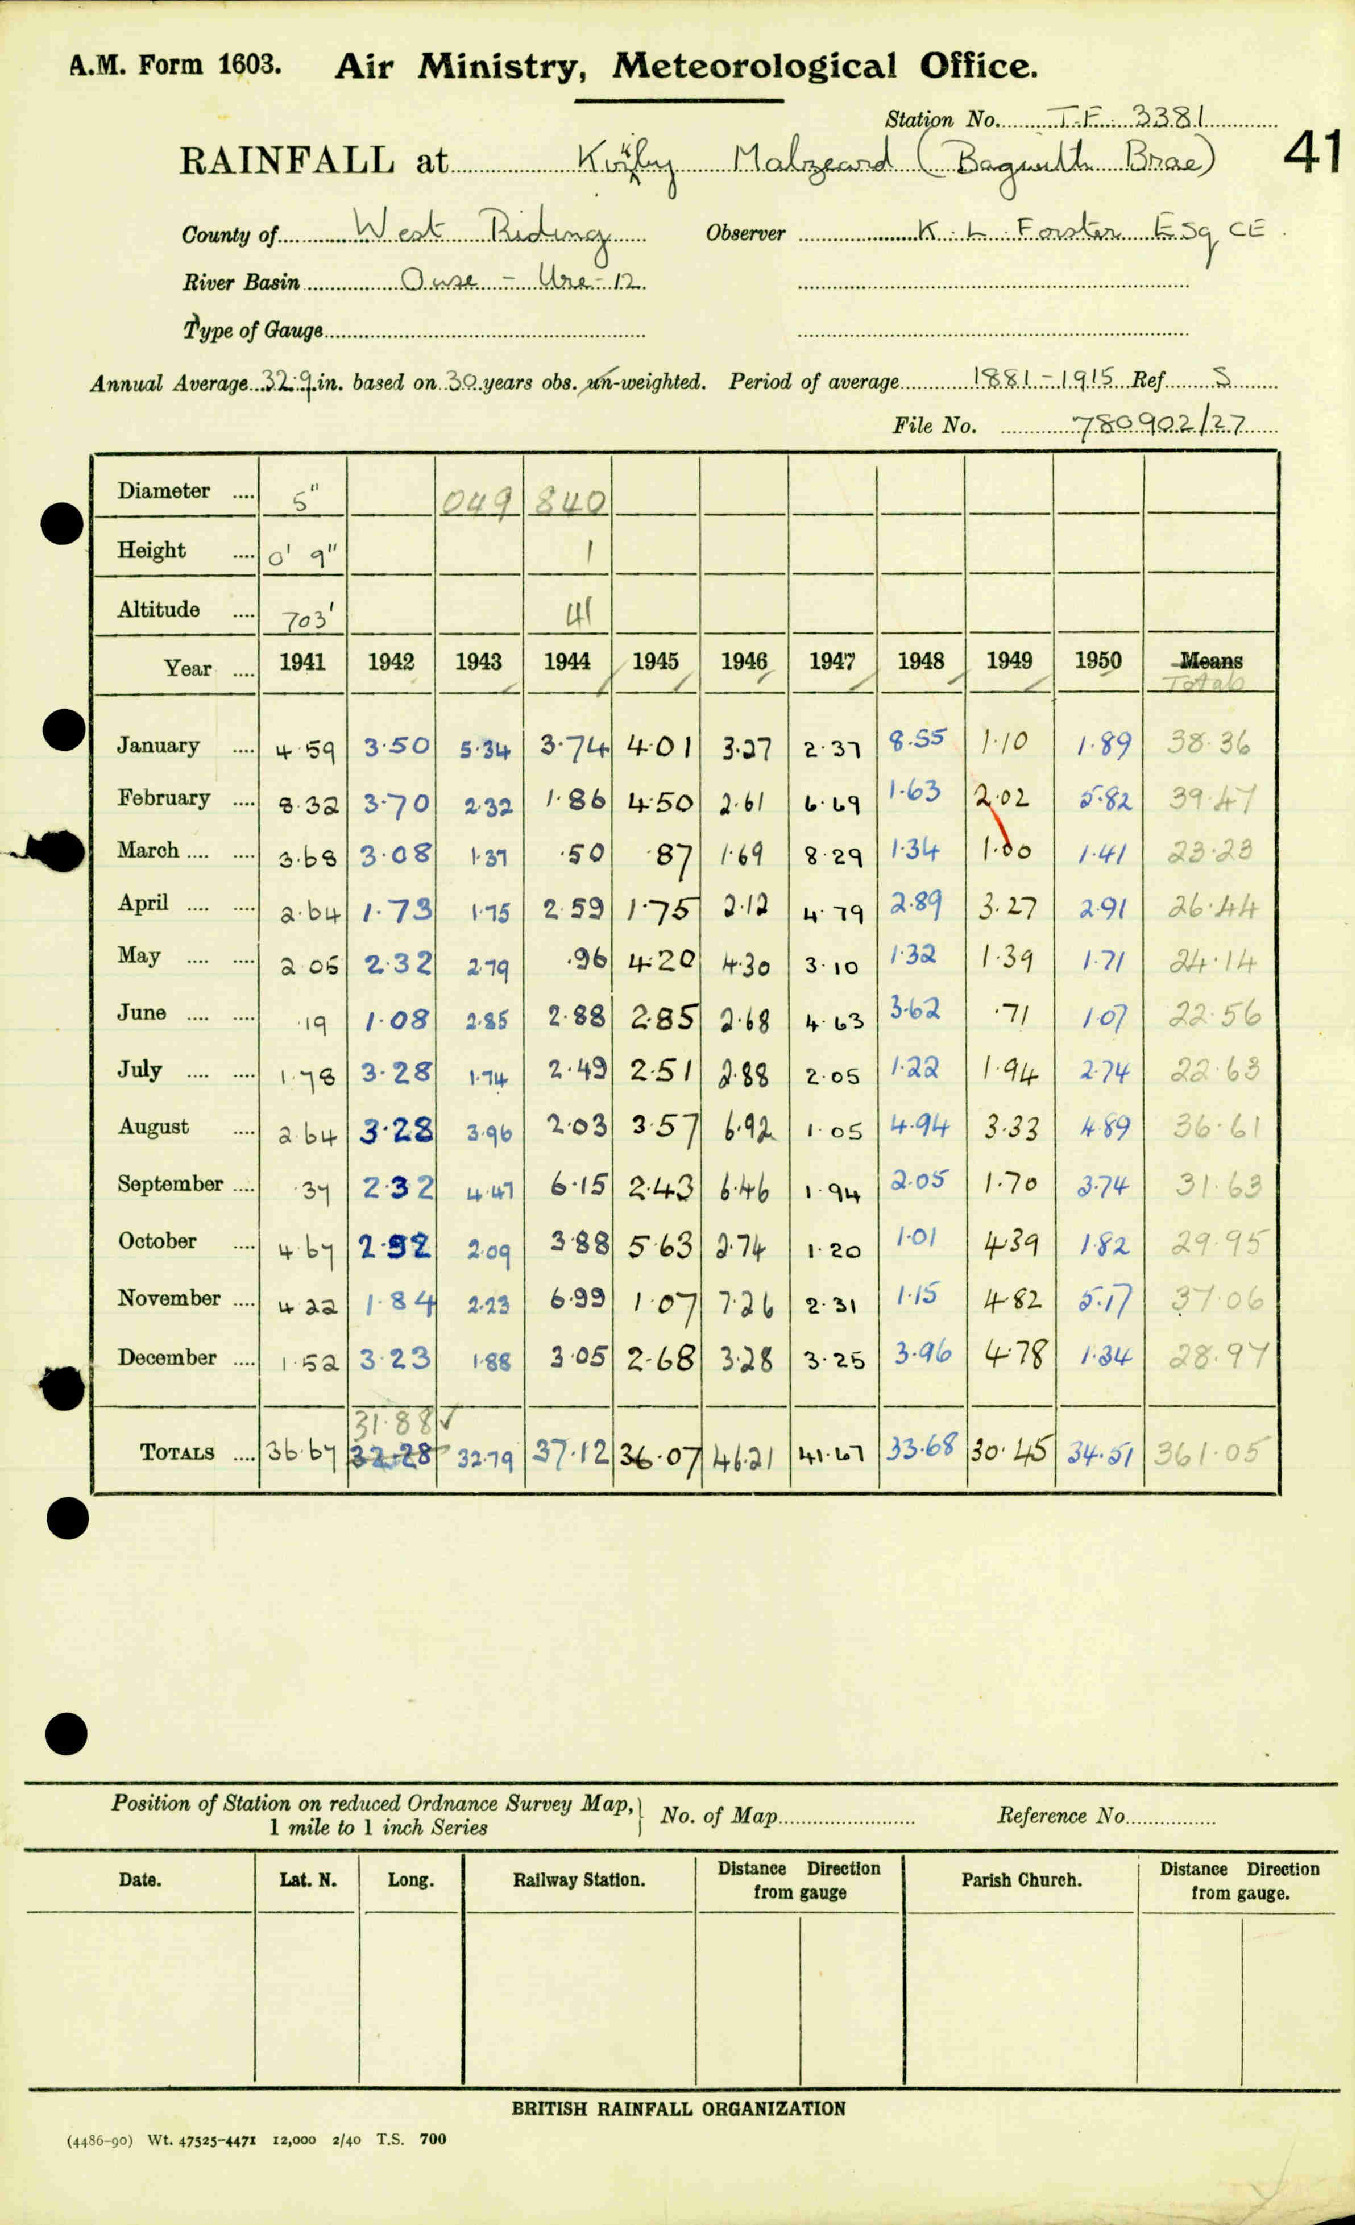 A.M. Form 1603. Air Ministry, Meteorological Office.
Station No. T.F. 3381
RAINFALL at Kirkby Malzeard (Bagwith Brae) 41
County of West Riding Observer K. L. Forster Esq CE.
River Basin Ouse - Ure - 12
Type of Gauge
Annual Average 32.9 in. based on 30 years obs. un-weighted. Period of average 1881-1915 Ref. S
File No. 780902/27
Diameter .... 5" 049 840
Height .... 0' 9" 1
Altitude .... 703' 41
Year .... 1941 1942 1943 1944 1945 1946 1947 1948 1949 1950 Means
Totals
January .... 4.59 3.50 5.34 3.74 4.01 3.27 2.37 8.55 1.10 1.89 38.36
February .... 8.32 3.70 2.32 1.86 4.50 2.61 6.69 1.63 2.02 5.82 39.47
March .... .... 3.68 3.08 1.37 .50 .87 1.69 8.29 1.34 1.00 1.41 23.23
April .... .... 2.64 1.73 1.75 2.59 1.75 2.12 4.79 2.89 3.27 2.91 26.44
May .... .... 2.05 2.32 2.79 .96 4.20 4.30 3.10 1.32 1.39 1.71 24.14
June .... .... .19 1.08 2.85 2.88 2.85 2.68 4.63 3.62 .71 1.07 22.56
July .... .... 1.78 3.28 1.74 2.49 2.51 2.88 2.05 1.22 1.94 2.74 22.63
August .... 2.64 3.28 3.96 2.03 3.57 6.92 1.05 4.94 3.33 4.89 36.61
September .... .37 2.32 4.47 6.15 2.43 6.46 1.94 2.05 1.70 3.74 31.63
October .... 4.67 2.52 2.09 3.88 5.63 2.74 1.20 1.01 4.39 1.82 29.95
November .... 4.22 1.84 2.23 6.99 1.07 7.26 2.31 1.15 4.82 5.17 37.06
December .... 1.52 3.23 1.88 3.05 2.68 3.28 3.25 3.96 4.78 1.34 28.97
31.88 ✓
TOTALS .... 36.67 32.28 32.79 37.12 36.07 46.21 41.67 33.68 30.45 34.51 361.05
Position of Station on reduced Ordnance Survey Map, No. of Map Reference No.
1 mile to 1 inch Series
Date. Lat. N. Long. Railway Station. Distance Direction from gauge Parish Church. Distance Direction from gauge.
BRITISH RAINFALL ORGANIZATION
(4486-90) Wt. 47325-4471 12,000 2/40 T.S. 700